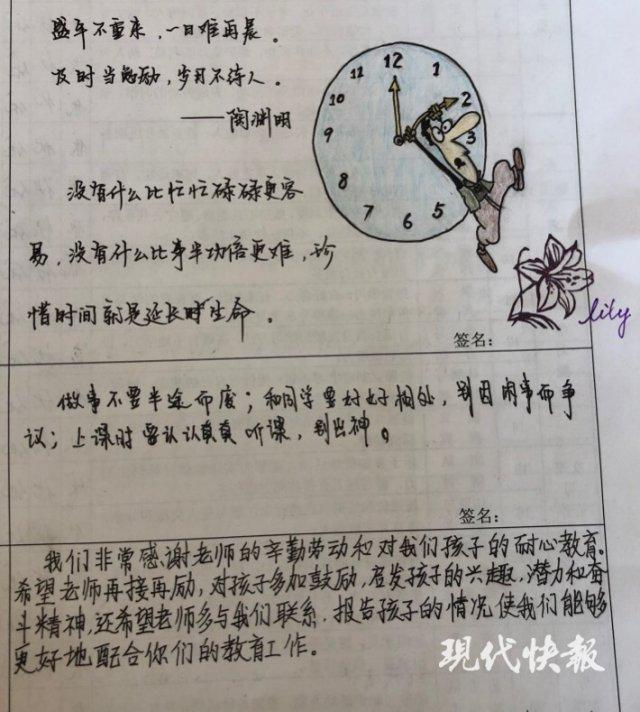 盛年不重来，一日难再晨。
及时当勉励，岁月不待人。
——陶渊明
没有什么比忙忙碌碌更容
易，没有什么比事半功倍更难，珍
惜时间就是延长时生命。
12
1
2
3
5
6
7
8
9
10
11
lily
签名：
做事不要半途而废；和同学要好好相处，别因闲事而争
议；上课时要认认真真听课，别出神。
签名：
我们非常感谢老师的辛勤劳动和对我们孩子的耐心教育。
希望老师再接再励，对孩子多加鼓励，启发孩子的兴趣，潜力和奋
斗精神，还希望老师多与我们联系，报告孩子的情况使我们能够
更好地配合你们的教育工作。
现代快報